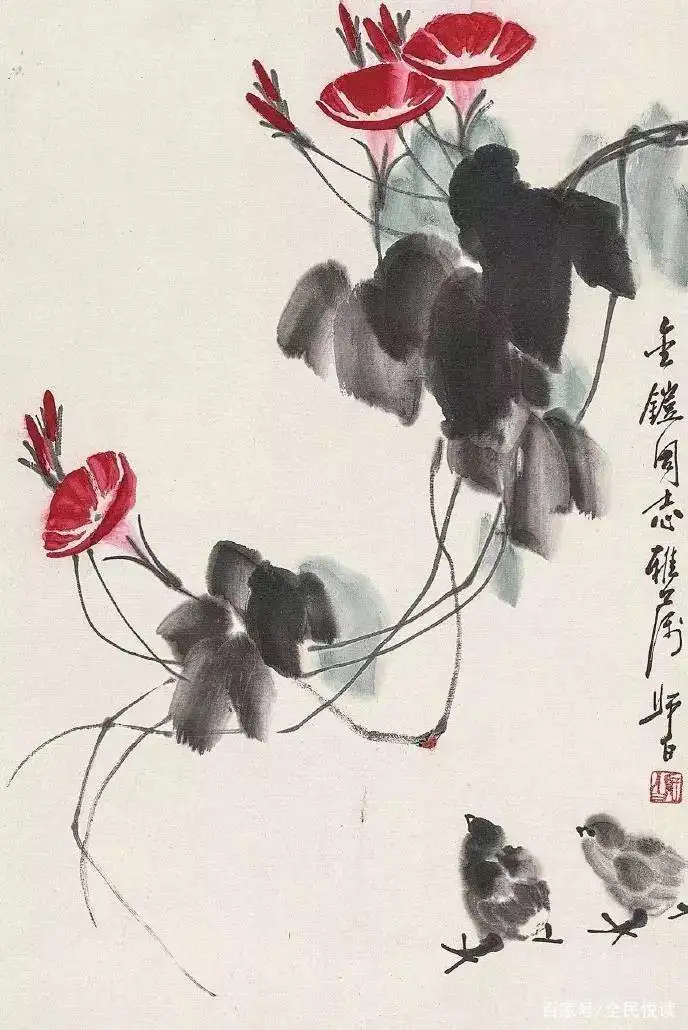 金铠同志雅属 师白
百家号/全民悦读